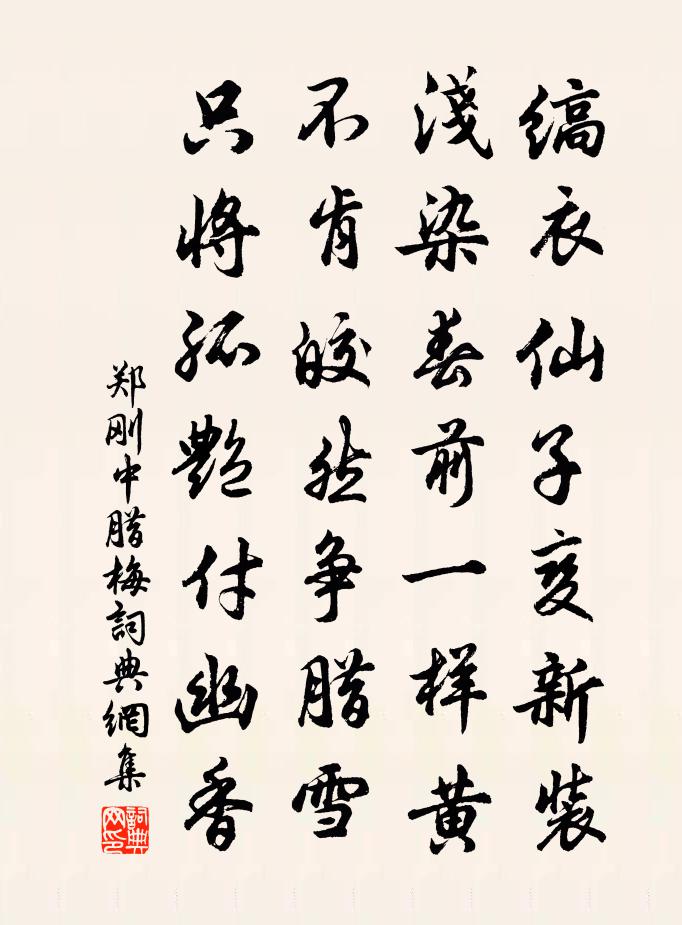 缟衣仙子变新装
淺染春前一样黄
不肯皎然争腊雪
只将孤艷付幽香
郑刚中腊梅詞典網集
詞典网印